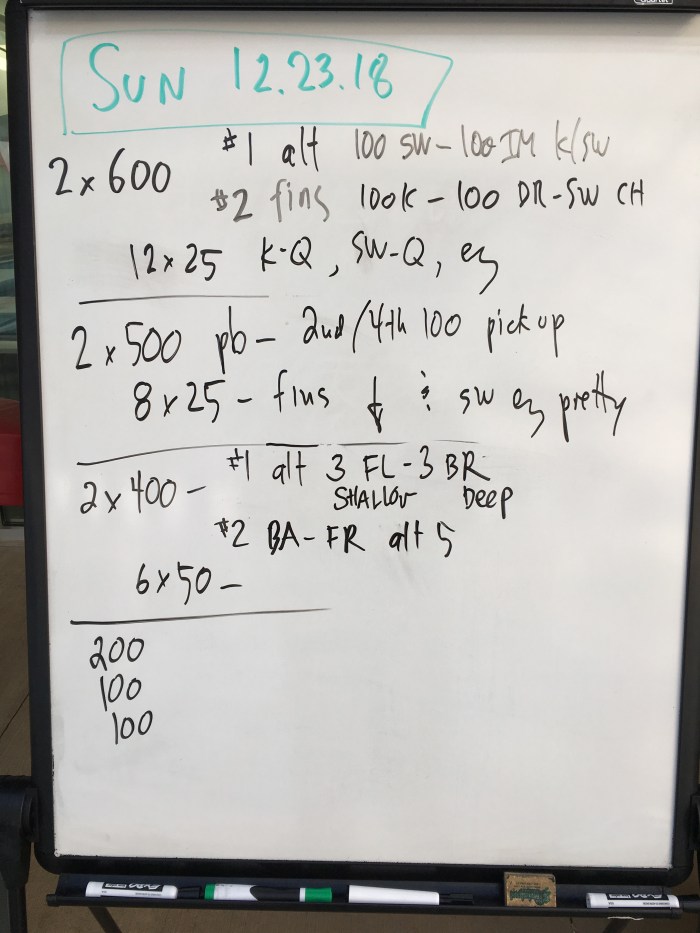 SUN 12.23.18
2 x 600 #1 alt 100 SW - 100 IM K/SW
#2 fins 100K - 100 DR-SW CH
12 x 25 K-Q, SW-Q, ez
2 x 500 pb - 2nd/4th 100 pick up
8 x 25 - fins ↓ & SW ez pretty
2 x 400 - #1 alt 3 FL - 3 BR
SHALLOW Deep
#2 BA - FR alt 5
6 x 50 -
200
100
100